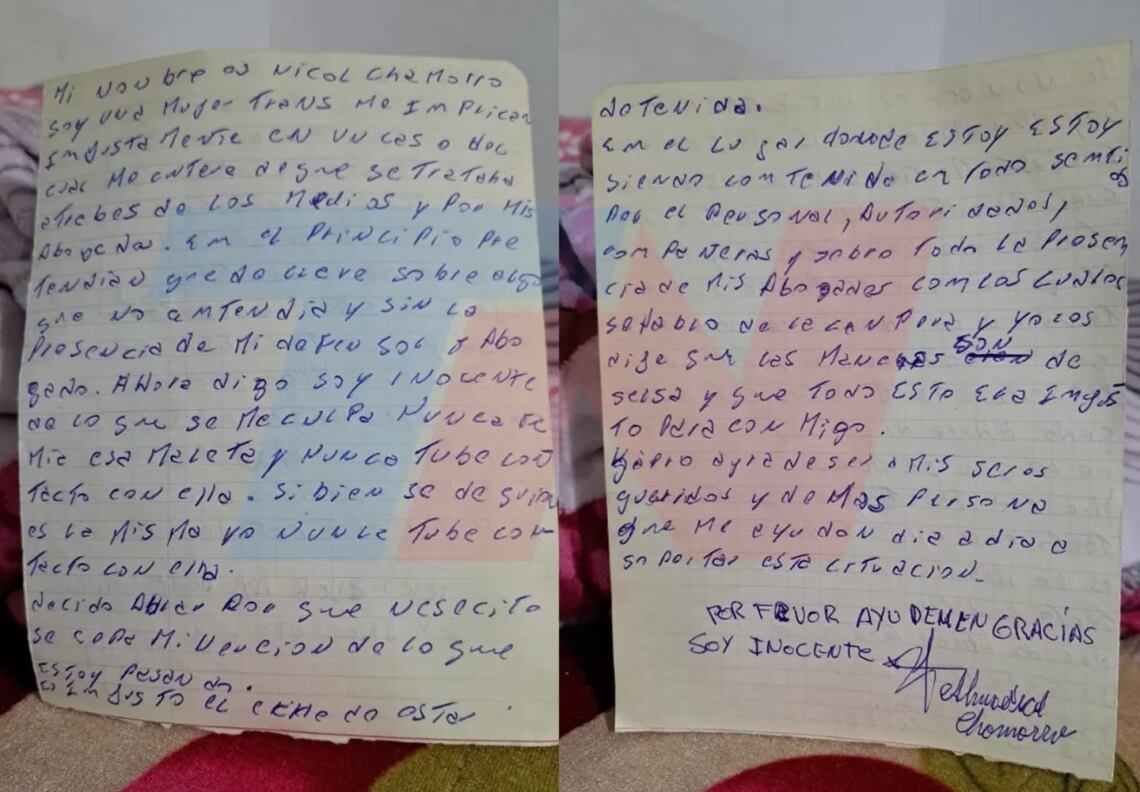 Mi NOMbre es Nicol Chamorro
Soy una Muger Trans Me Implican
Injusta Mente en un caso o del
cual Me entere de que se trataba
atrebes de los Medios y por Mis
Abogados. En el Principio Pre
tendian que declare sobre algo
que no entendia y sin la
Presencia de Mi defensor o Abo
gado. Ahora digo soy inocente
de lo que se Me culpa Nunca Fe
Mie esa Maleta y Nunca Tube con
tacto con ella. Si bien se de quien
es la Misma yo Nunca Tube con
tacto con ella.
decido Ablar Por que nesecito
se cepa Mi vercion de lo que
Estoy pasando.
es injusto el echo de estar
detenida.
en el lugar donde ESTOY ESTOY
siendo contenida en todo senti
do
Por el Personal, Autoridades,
compañeras y sobre todo la Presen
cia de Mis Abogados con los cuales
se hablo de la campera y yo les
dije que las Manchas SON de
seisa y que todo ESTO era Injus
To Para con Migo.
agradeser a Mis seres
queridos y deMas Persona
que Me ayudan dia a dia a
soportar esta cituacion.
POR FAVOR AYUDEMEN GRACIAS
SOY INOCENTE
Chamorro